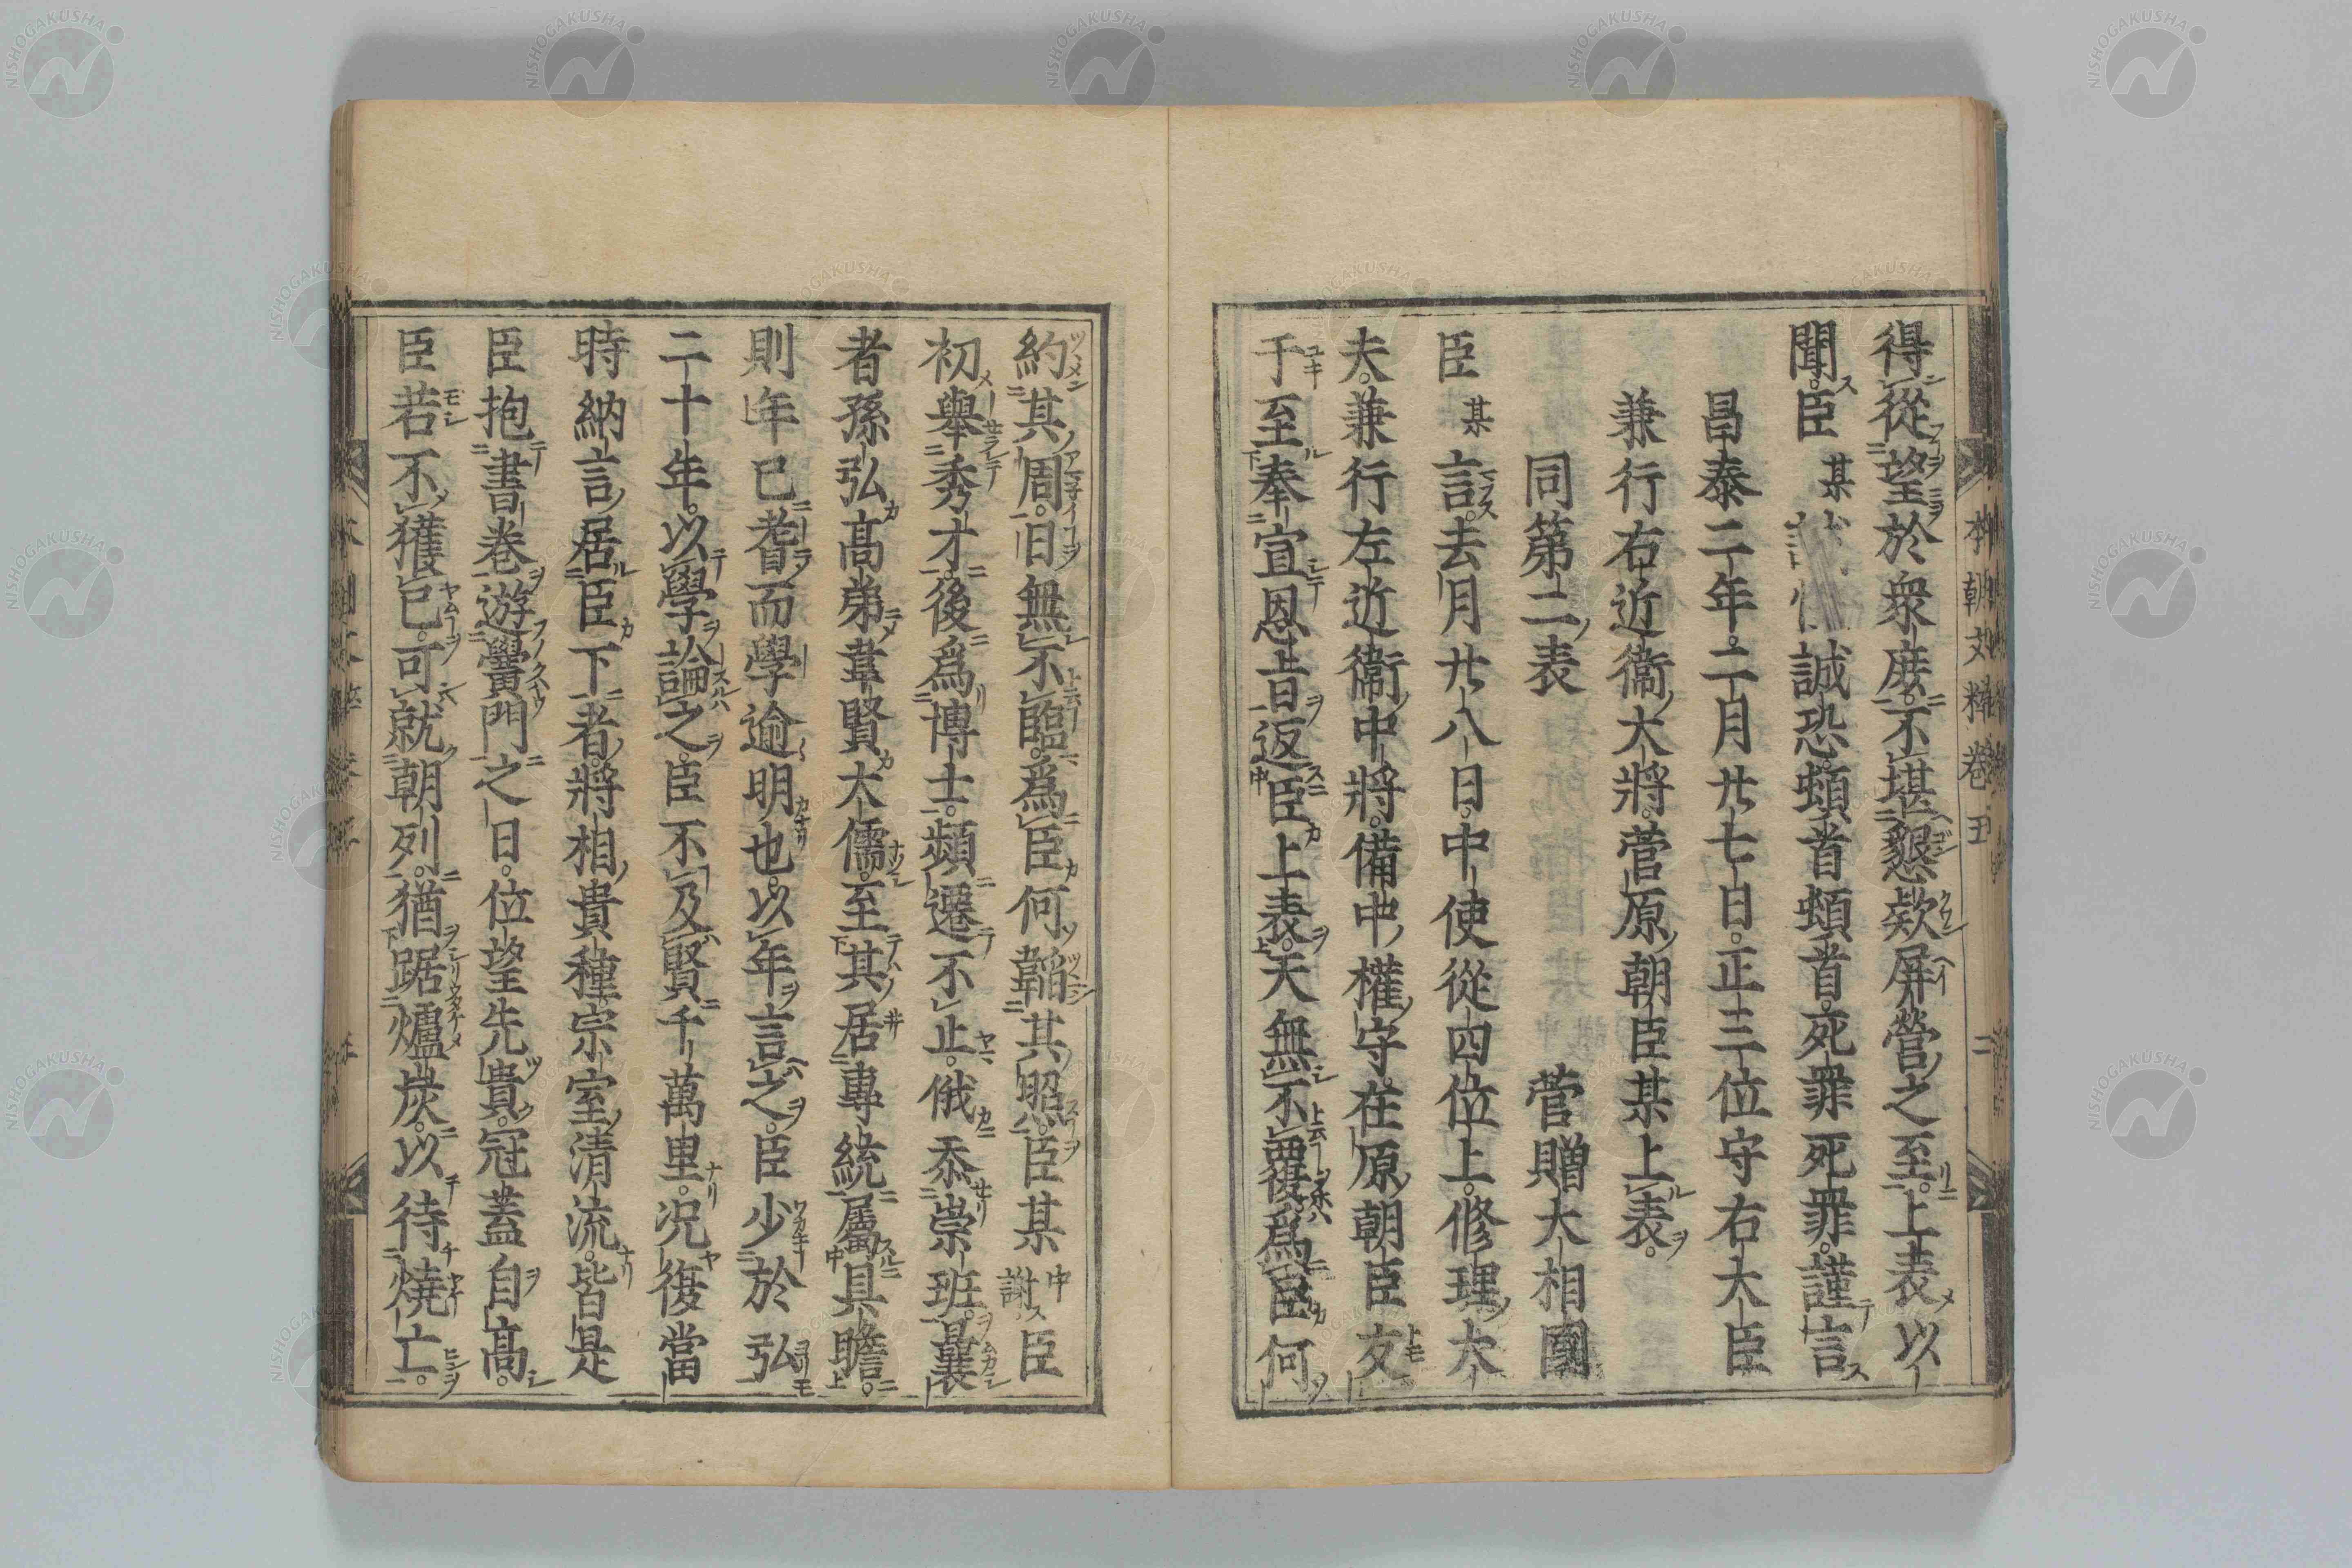 得從望於衆庶。不堪懇欵屏營之至。上表以
聞。臣某 誠恐。頓首頓首。死罪死罪。謹言
昌泰二年。二月廿七日。正三位守右大臣
兼行右近衞大將。菅原朝臣某上表。
同第二表 菅贈大相國
臣某言。去月廿八日。中使從四位上。修理大
夫。兼行左近衞中將。備中權守。在原朝臣友
于至奉宣恩旨。返臣上表。天無不覆。爲臣何
約其周。日無不臨。爲臣何韜其照。臣某中謝臣
初舉秀才。後爲博士。頻遷不止。俄忝崇班。曩
者孫弘高弟。韋賢大儒。至其居專統屬具瞻。
則年已耆而學逾明也。以年言之。臣少於弘
二十年。以學論之。臣不及賢千萬里。況復當
時納言居臣下者。將相貴種宗室清流。皆是
臣抱書卷遊黌門之日。位望先貴。冠蓋自高。
臣若不獲已。可就朝列。猶踞爐炭。以待燒亡。
本朝文粹卷五 二